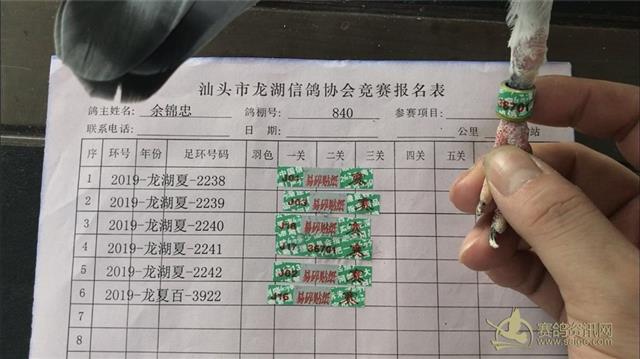 汕头市龙湖信鸽协会竞赛报名表
鸽主姓名: 余锦忠 鸽棚号: 840 参赛项目:
联系电话: 日 期: 公里 站
序 环号 年份 足环号码 羽色 一关 二关 三关 四关 五关
1 2019-龙湖夏-2238 易碎贴纸 赛
2 2019-龙湖夏-2239 J03 易碎贴纸 赛
3 2019-龙湖夏-2240 J18 易碎贴纸 赛
4 2019-龙湖夏-2241 J17 36701 赛
5 2019-龙湖夏-2242 J02 易碎贴纸 赛
6 2019-龙夏百-3922 J16 易碎贴纸 赛
7
8
36701
赛鸽资讯网